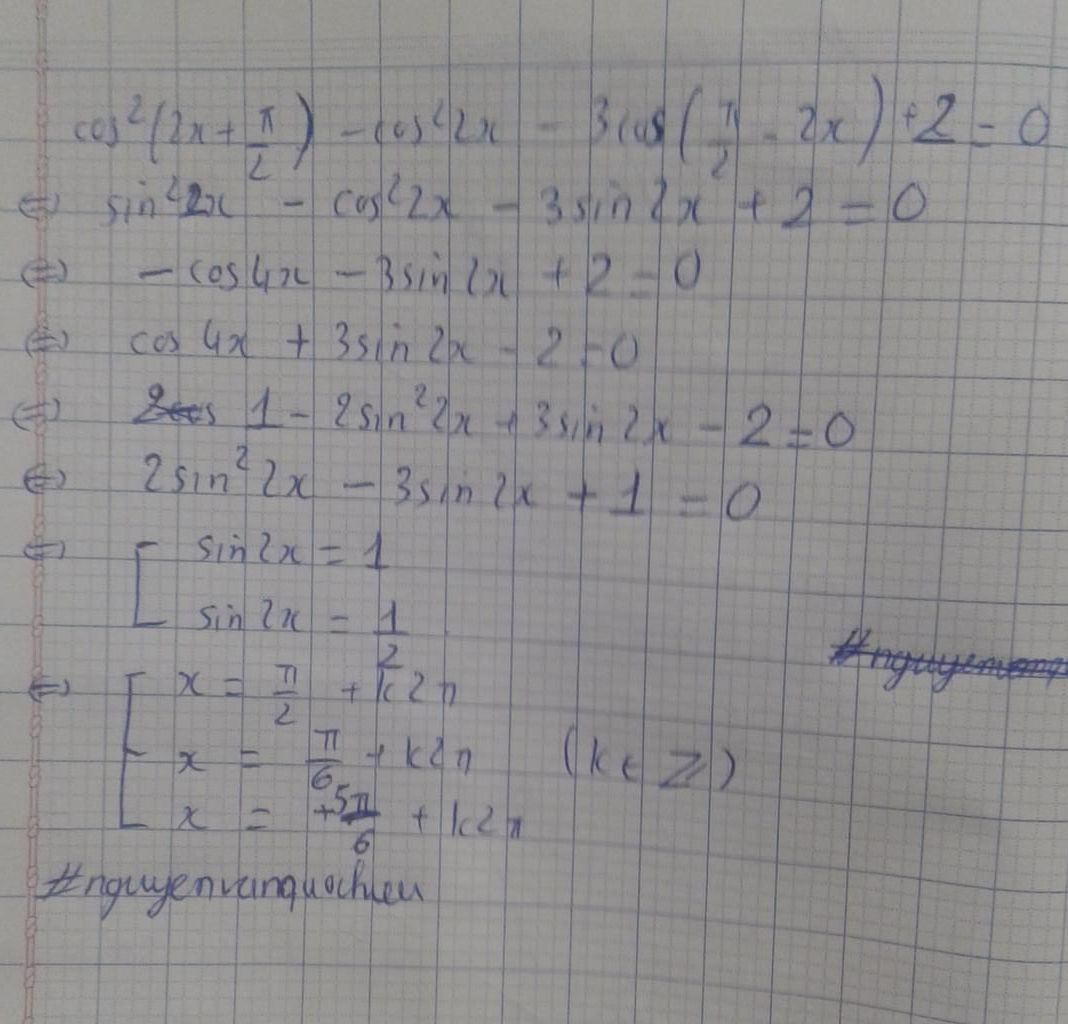 cos²(2x + π/2) - cos²2x - 3cos(π/2 - 2x) + 2 = 0
⇔ sin²2x - cos²2x - 3sin2x + 2 = 0
⇔ - cos4x - 3sin2x + 2 = 0
⇔ cos4x + 3sin2x - 2 = 0
⇔ 1 - 2sin²2x + 3sin2x - 2 = 0
⇔ 2sin²2x - 3sin2x + 1 = 0
⇔ [ sin2x = 1
sin2x = 1/2
⇔ [ x = π/2 + k2π
x = π/6 + k2π (k ∈ Z)
x = +5π/6 + k2π
#nguyenvanquochieu